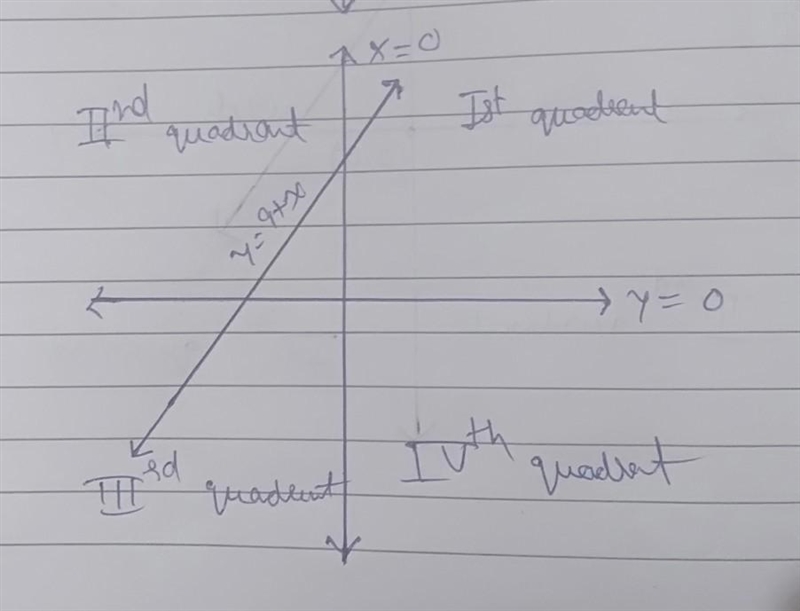 x=0
IInd quadrant
Ist quadrant
y=9+x
y=0
IIIrd quadrant
IVth quadrant